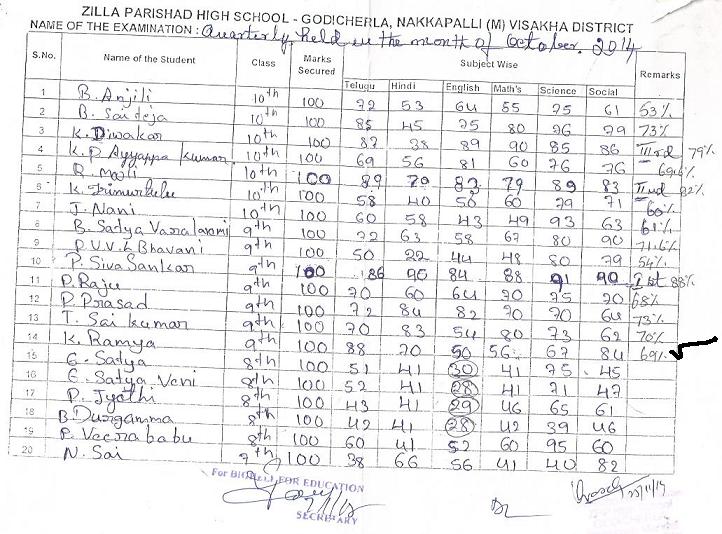 ZILLA PARISHAD HIGH SCHOOL - GODICHERLA, NAKKAPALLI (M) VISAKHA DISTRICT
NAME OF THE EXAMINATION : Quarterly, held in the month of October, 2014
S.No. Name of the Student Class Marks Secured Subject Wise Remarks
Telugu Hindi English Math's Science Social
1 B. Anjili 10th 100 72 53 64 55 75 61 53%
2 B. Sai teja 10th 100 85 45 75 80 76 79 73%
3 K. Diwakar 10th 100 87 38 89 90 85 86 IIIrd 79%
4 K. P. Ayyappa kumar 10th 100 69 56 81 60 76 76 69.6%
5 R. Mali 10th 100 89 79 82 79 89 83 IInd 82%
6 K. Trimurtulu 10th 100 58 40 56 60 79 71 60%
7 J. Nani 10th 100 60 58 43 49 93 63 61%
8 B. Satya Varalaxmi 9th 100 72 63 58 67 80 90 71.6%
9 D.V.V.L Bhavani 9th 100 50 22 44 48 80 79 54%
10 P. Siva Sankar 9th 100 86 90 84 88 91 90 Ist 88%
11 P. Raju 9th 100 70 60 64 70 75 70 68%
12 P. Prasad 9th 100 72 84 82 70 70 64 73%
13 T. Sai kumar 9th 100 70 83 54 80 73 62 70%
14 K. Ramya 9th 100 88 70 50 56 67 84 69%
15 G. Satya 8th 100 51 41 30 41 75 45
16 G. Satya Veni 8th 100 52 41 28 41 71 47
17 P. Jyothi 8th 100 43 41 29 46 65 61
18 B. Durgamma 8th 100 42 41 28 42 39 46
19 P. Veerababu 8th 100 60 41 52 60 95 60
20 N. Sai 7th 100 38 66 56 41 40 82
FOR EDUCATION
SECRETARY